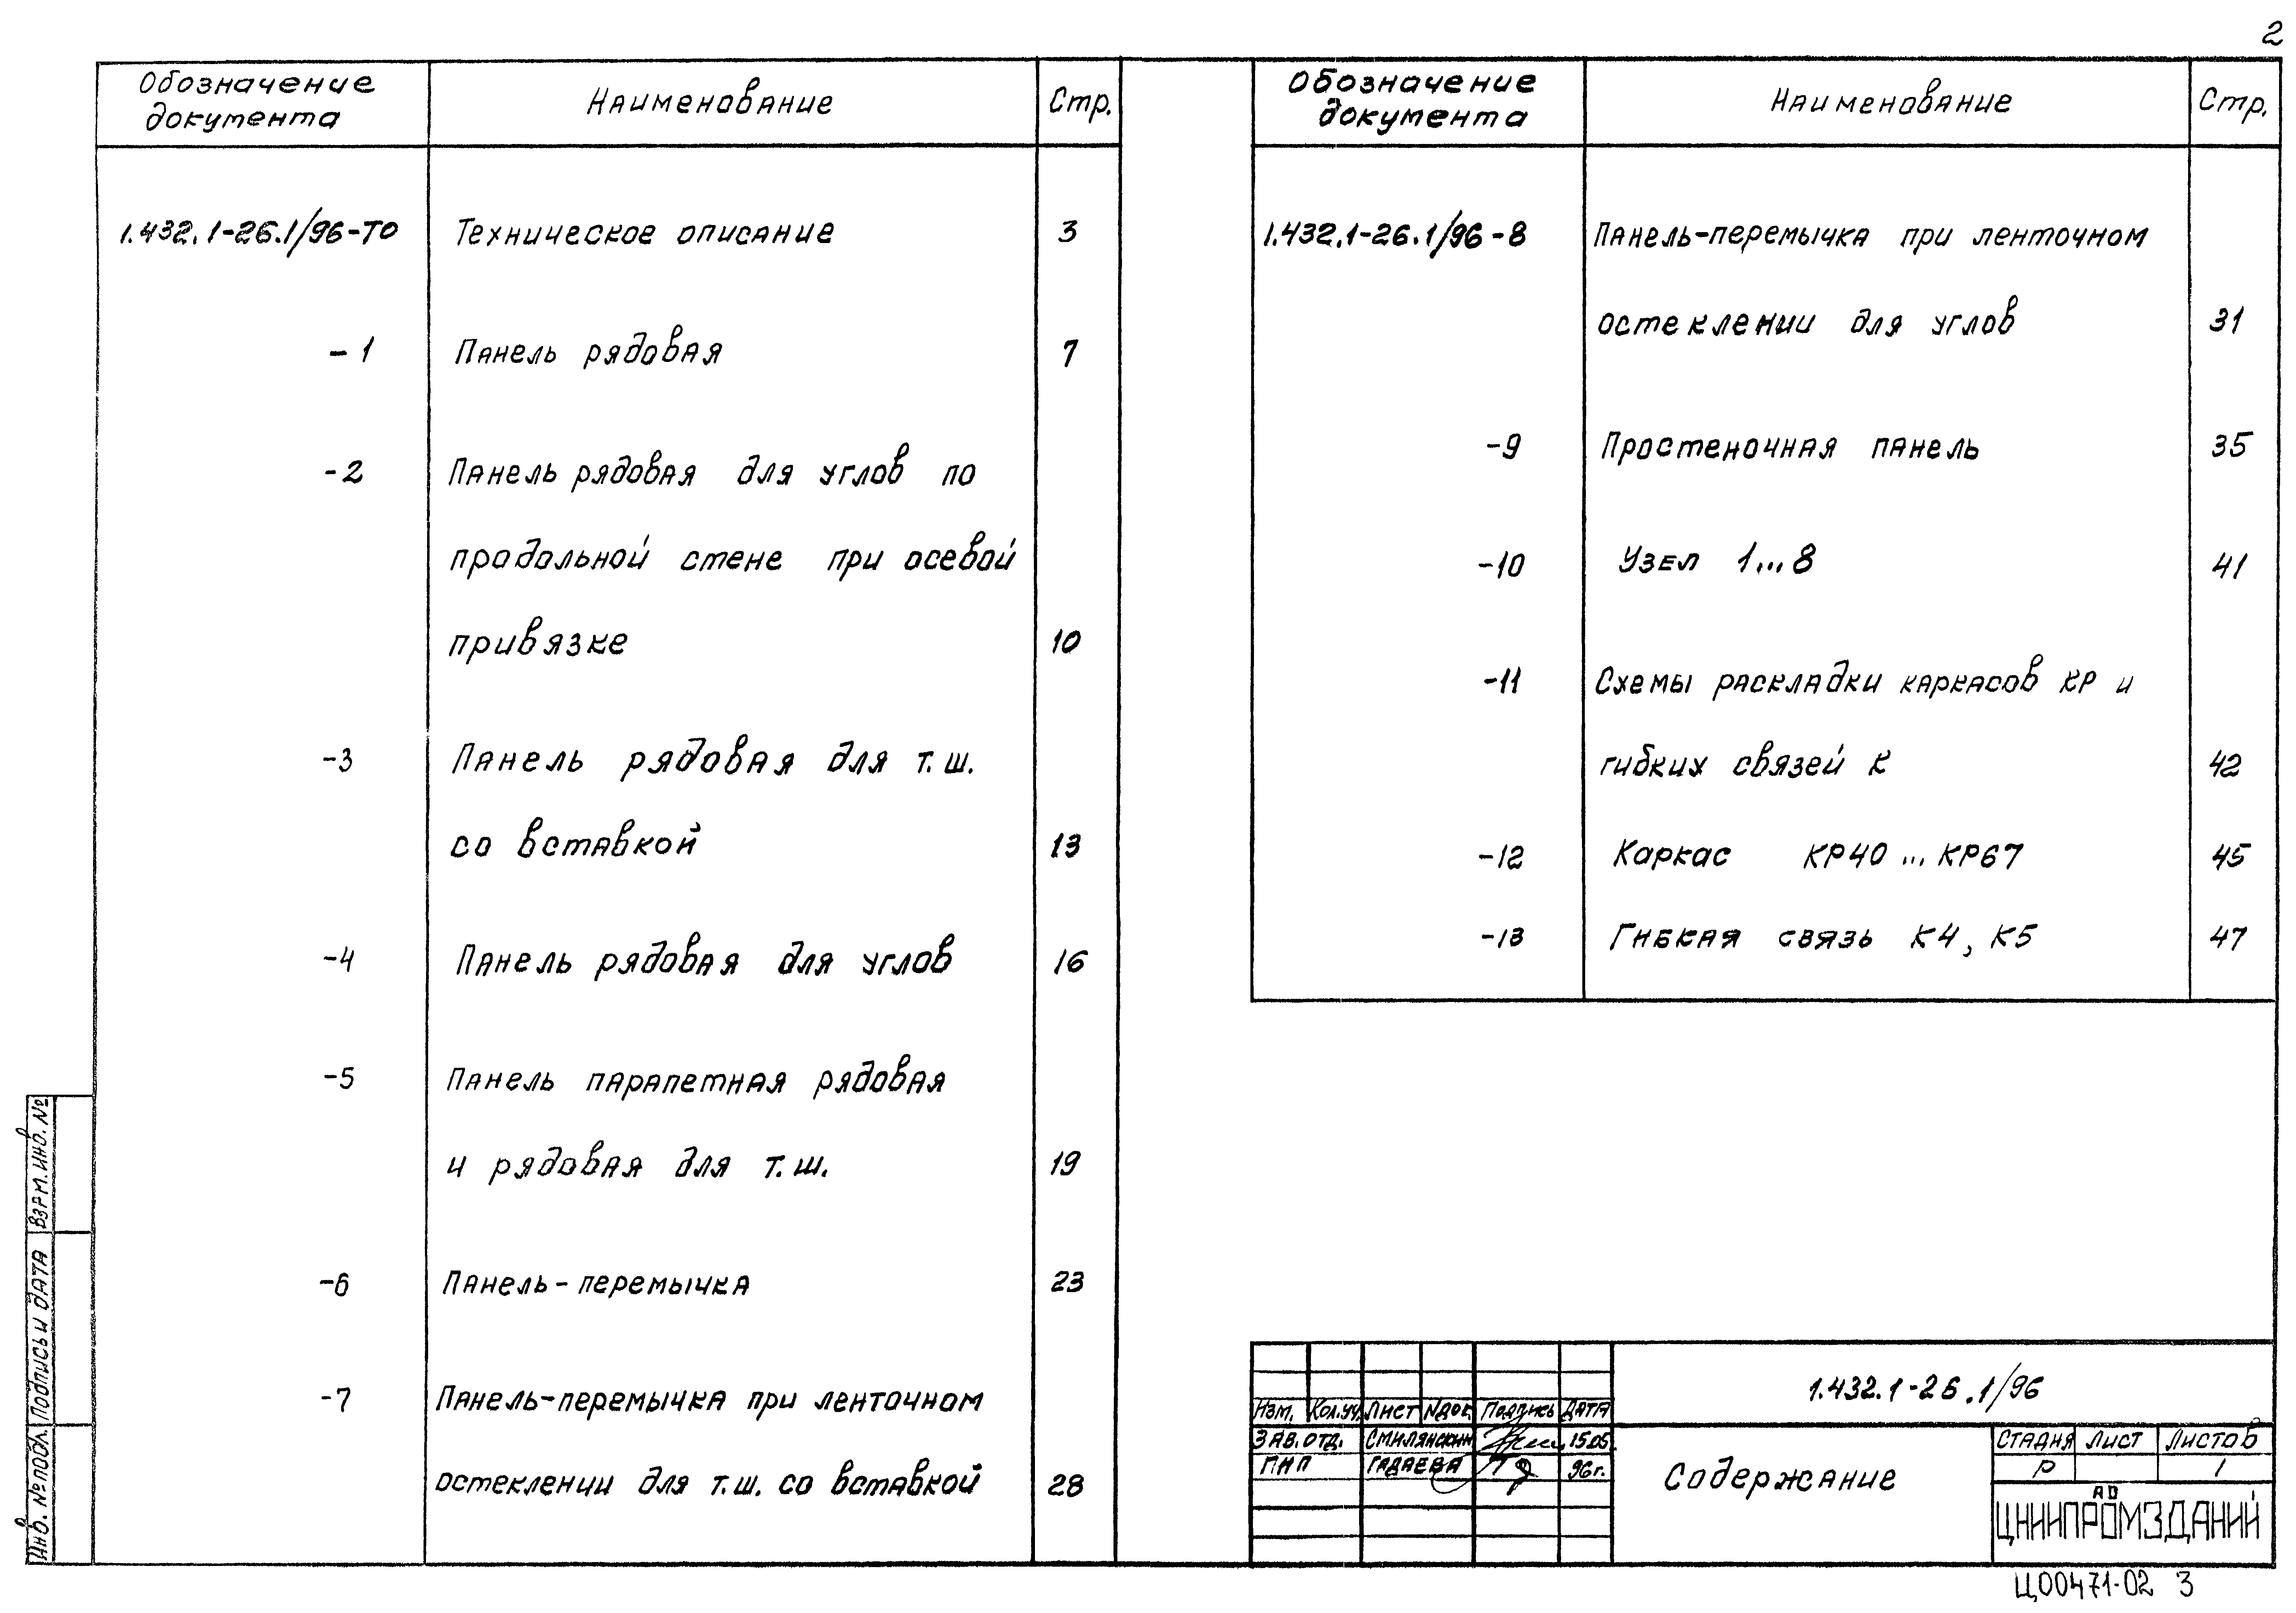 2
Обозначение документа Наименование Стр.
1.432.1-26.1/96-ТО Техническое описание 3
-1 Панель рядовая 7
-2 Панель рядовая для углов по
продольной стене при осевой
привязке 10
-3 Панель рядовая для т.ш.
со вставкой 13
-4 Панель рядовая для углов 16
-5 Панель парапетная рядовая
и рядовая для т.ш. 19
-6 Панель-перемычка 23
-7 Панель-перемычка при ленточном
остеклении для т.ш. со вставкой 28
Обозначение документа Наименование Стр.
1.432.1-26.1/96-8 Панель-перемычка при ленточном
остеклении для углов 31
-9 Простеночная панель 35
-10 Узел 1...8 41
-11 Схемы раскладки каркасов КР и
гибких связей К 42
-12 Каркас КР40...КР67 45
-13 Гибкая связь К4, К5 47
Взам. инв. №
Подпись и дата
Инв. № подл.
1.432.1-26.1/96
Изм. Кол.уч. Лист №док. Подпись Дата
Зав. отд. Смилянский 15.05.
ГИП Гадаева 96г.
Содержание
Стадия Лист Листов
Р 1
АО
ЦНИИПРОМЗДАНИЙ
Ц00471-02 3